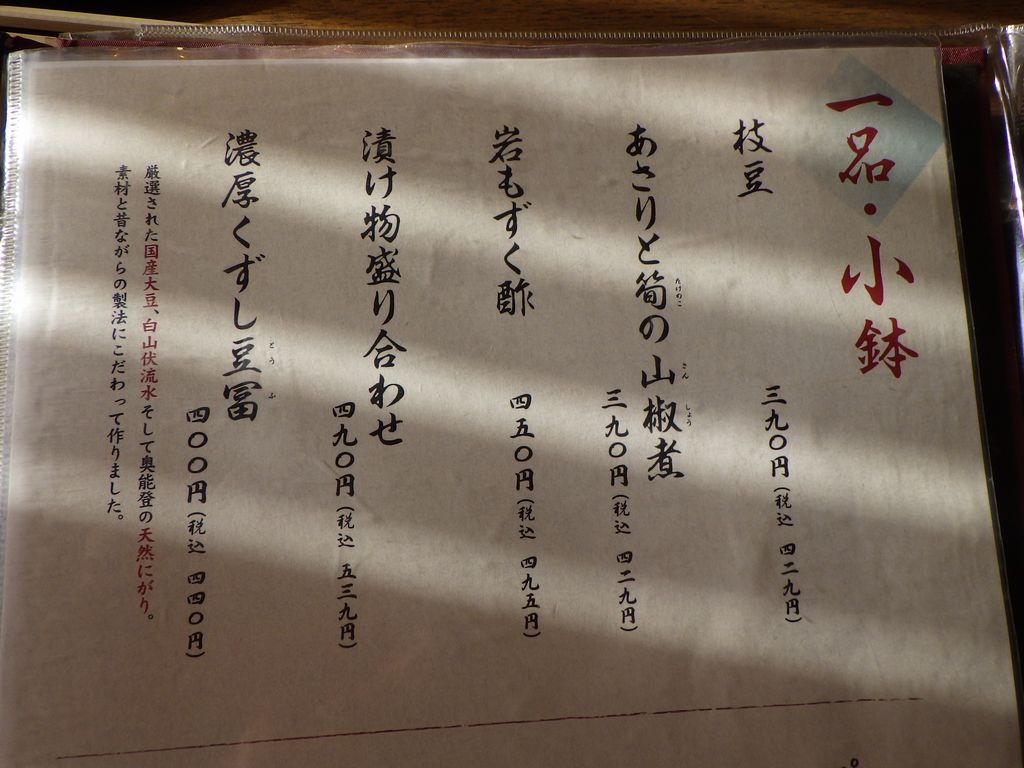 一品・小鉢
枝豆
三九〇円（税込 四二九円）
あさりと筍の山椒煮
たけのこ
さんしょう
三九〇円（税込 四二九円）
岩もずく酢
四五〇円（税込 四九五円）
漬け物盛り合わせ
四九〇円（税込 五三九円）
濃厚くずし豆冨
とうふ
四〇〇円（税込 四四〇円）
厳選された国産大豆、白山伏流水そして奥能登の天然にがり。
素材と昔ながらの製法にこだわって作りました。